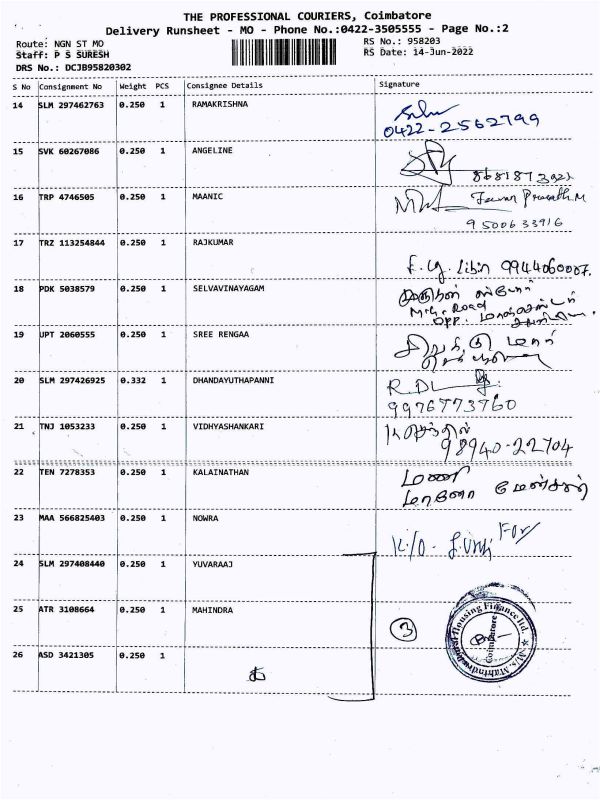 THE PROFESSIONAL COURIERS, Coimbatore
Delivery Runsheet - MO - Phone No.:0422-3505555 - Page No.:2
Route: NGN ST MO
Staff: P S SURESH
DRS No.: DCJB95820302
RS No.: 958203
RS Date: 14-Jun-2022
S No Consignment No Weight PCS Consignee Details Signature
14 SLM 297462763 0.250 1 RAMAKRISHNA
0422-2562799
15 SVK 60267086 0.250 1 ANGELINE
16 TRP 4746505 0.250 1 MAANIC
9500633916
17 TRZ 113254844 0.250 1 RAJKUMAR
9944060007.
18 PDK 5038579 0.250 1 SELVAVINAYAGAM
Road
opp.
19 UPT 2060555 0.250 1 SREE RENGAA
20 SLM 297426925 0.332 1 DHANDAYUTHAPANNI
9976773760
21 TNJ 1053233 0.250 1 VIDHYASHANKARI
98940-22704
22 TEN 7278353 0.250 1 KALAINATHAN
மணி
23 MAA 566825403 0.250 1 NOWRA
24 SLM 297408440 0.250 1 YUVARAAJ
25 ATR 3108664 0.250 1 MAHINDRA
3
26 ASD 3421305 0.250 1
M/s. Mahindra Rural Housing Finance ltd.
Coimbatore